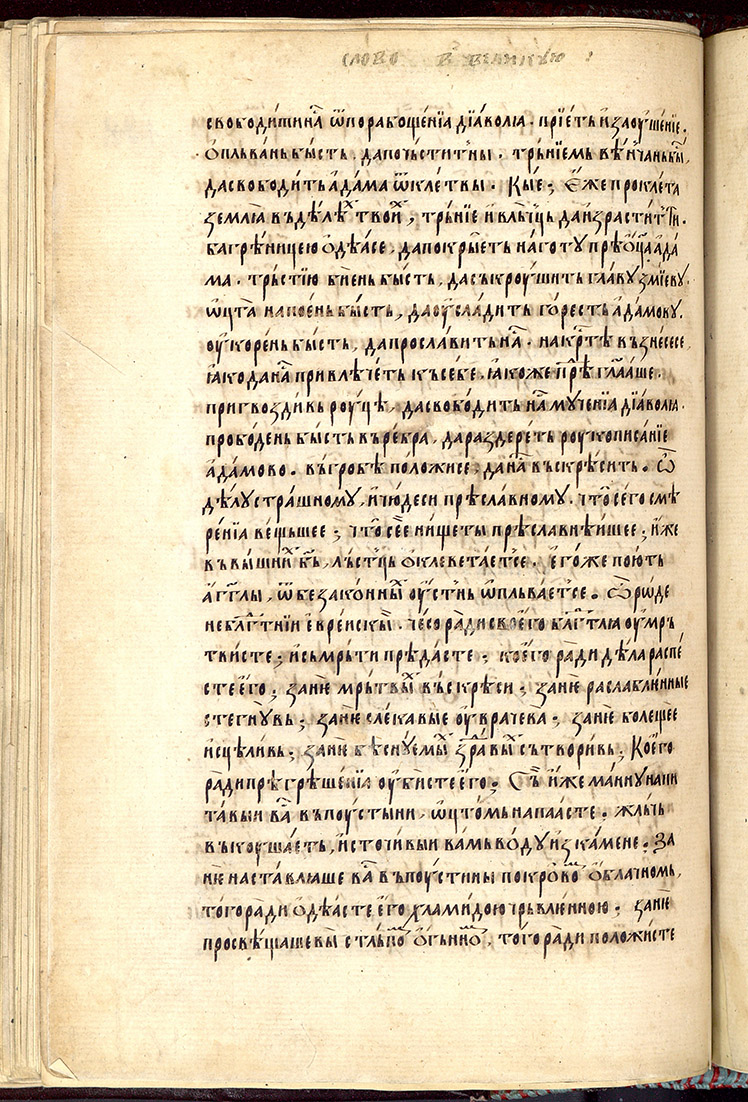 слово в великую :
свободитинⷭ҇а ѿпорабощенїа дїаволꙗ · прїетьи заоушенїе.
ѻпльвань бысть. да почьститны · трьнїемь вѣнчань бы̑,
да свободить адама ѿ клетвы · Кые; Еже проклета
землꙗ въ дѣлѣⷯ твоиⷯ, трьнїе и вльчць да израстить ти.
багрѣницею ѡдѣасе, да покрыеть наготу прѣѻц҃а ада
ма · трьстїю бїень бысть, да съкроушить главу змїеву
ѡцта напоень бысть, да оусладить горесть адамову.
оукорень бысть, да прославить наⷭ · на крⷭтѣ възнесесе
ꙗко да наⷭ привлѣчеть къ себе · ꙗкоже прѣгл҃аше.
пригвоздивь роуцѣ, да свободить наⷭ мученїа дїаволꙗ.
прободень бысть въ ребра, да раздереть роукописанїе
адамово · въ гробѣ положисе; да наⷭ въскрѣсить · Ѽ
дѣлу страшному, и чюдеси прѣславному · что сего смѣ
ренїа вещьшее; что сее нищеты прѣславнѣишее; иже
въ вышниⷯ бг҃ь, льстць ѡклеветаетсе. егоже поють
агг҃лы, ѿ беззаконныⷯ оустнь ѡпльваетсе. Ѽ рѡде
небл҃гⷣтнїи евреискы · чесо ради своего бл҃гⷣтлꙗ оумрь
твисте; и съмрьти прѣдасте; коего ради дѣла распе
сте его; зание мрьтвыⷯ въскрѣси; зание раслабленные
стегнувь; зание слекавые оуврачева; зание болещее
исцѣливь; зание бѣснуемыⷯ здравыⷯ сътворивь; Коего
ради прѣгрѣшенїа оубисте его; Съ иже манну напи
тавыи ваⷭ въ поустыни, ѡцтомь напаасте. жльчь
въкоушаеть, источивыи вамь воду из камене. За
ние наставлꙗше ваⷭ въ поустыни покровоⷨ ѻблачномь,
того ради ѡдѣасте его хламидою чрьвленною; зание
просвѣщаше вы стльпоⷨ огьнноⷨ, того ради положисте